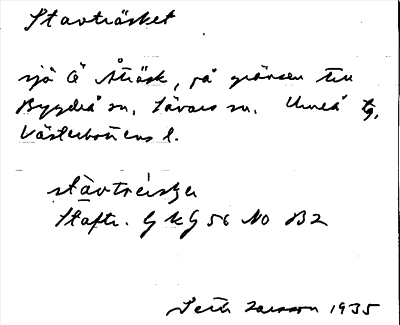 Stavträsket
sjö Ö Åträsk, på gränsen till
Bygdeå sn. Sävars sn. Umeå tg,
Västerbottens l.
stàvtrèisker
Staftr. G K G 56 NO B2
Seth Larsson 1935